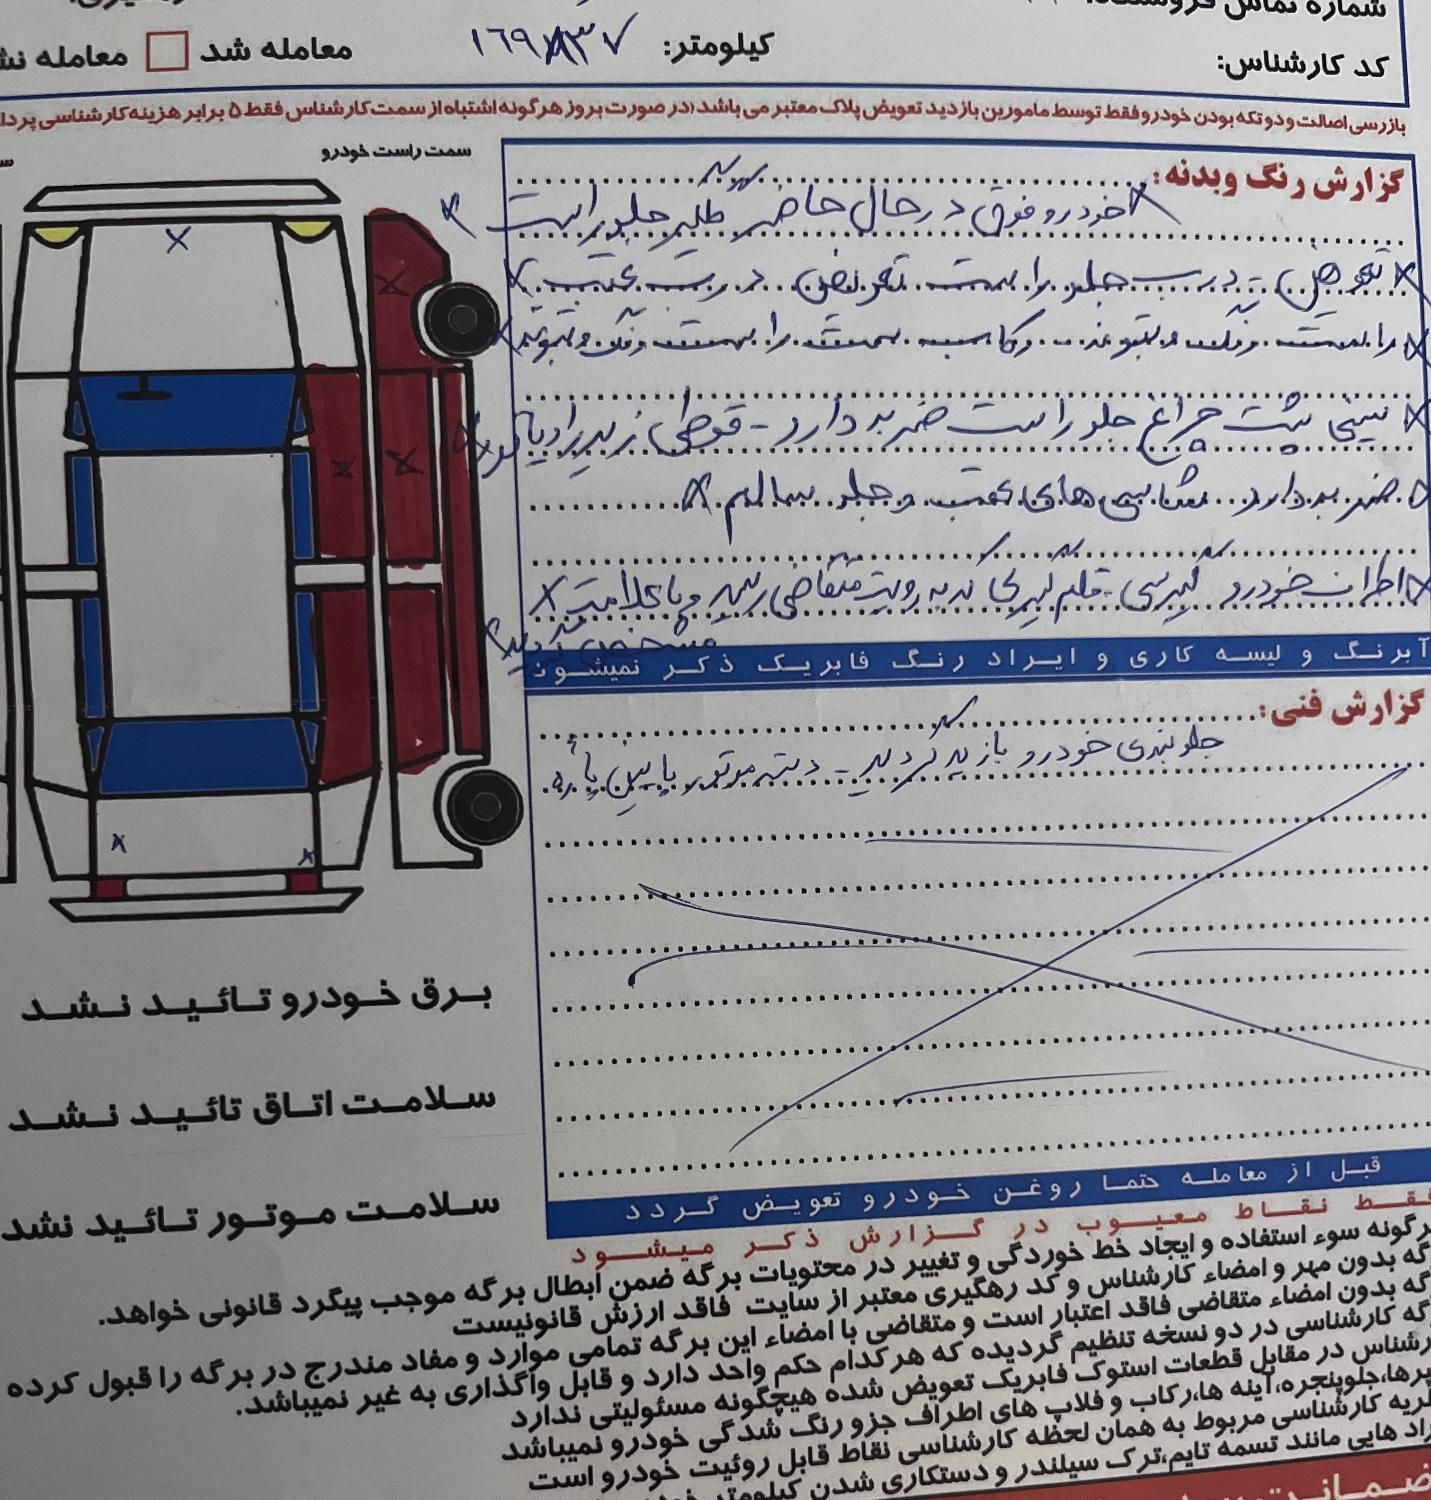 شماره تماس فروشنده:
کد کارشناس:
کیلومتر:
معامله شد
معامله
بازرسی اصالت و دو تکه بودن خودرو فقط توسط مامورین بازدید تعویض پلاک معتبر می باشد (در صورت بروز هرگونه اشتباه از سمت کارشناس فقط ۵ برابر هزینه کارشناسی
سمت راست خودرو
گزارش رنگ و بدنه:
خودرو فوق در حال حاضر گلگیر جلو راست
تعویض - درب جلو راست تعویض درب عقب
راست رنگ و بتونه رکاب سمت راست رنگ و بتونه
سینی پشت چراغ جلو راست ضربه دارد - قوطی زیر رادیاتور
ضربه دارد شاسی های عقب و جلو سالم
اطراف خودرو لیسی - قلم گیری که به رویت متقاضی رسید و با علامت X
مشخص گردید
آبرنگ و لیسه کاری و ایراد رنگ فابریک ذکر نمیشود
گزارش فنی:
جلوبندی خودرو بازدید گردید - دسته موتور پایین پاره
برق خودرو تائید نشد
سلامت اتاق تائید نشد
سلامت موتور تائید نشد
قبل از معامله حتما روغن خودرو تعویض گردد
فقط نقاط معیوب در گزارش ذکر میشود
هرگونه سوء استفاده و ایجاد خط خوردگی و تغییر در محتویات برگه ضمن ابطال برگه موجب پیگرد قانونی خواهد.
برگه بدون مهر و امضاء کارشناس و کد رهگیری معتبر از سایت فاقد ارزش قانونیست
برگه بدون امضاء متقاضی فاقد اعتبار است و متقاضی با امضاء این برگه تمامی موارد و مفاد مندرج در برگه را قبول کرده
برگه کارشناسی در دو نسخه تنظیم گردیده که هرکدام حکم واحد دارد و قابل واگذاری به غیر نمیباشد.
کارشناس در مقابل قطعات استوک فابریک تعویض شده هیچگونه مسئولیتی ندارد
سپرها،جلوپنجره،آینه ها،رکاب و فلاپ های اطراف جزو رنگ شدگی خودرو نمیباشد
نظریه کارشناسی مربوط به همان لحظه کارشناسی نقاط قابل روئیت خودرو است
ایراد هایی مانند تسمه تایم،ترک سیلندر و دستکاری شدن کیلومتر